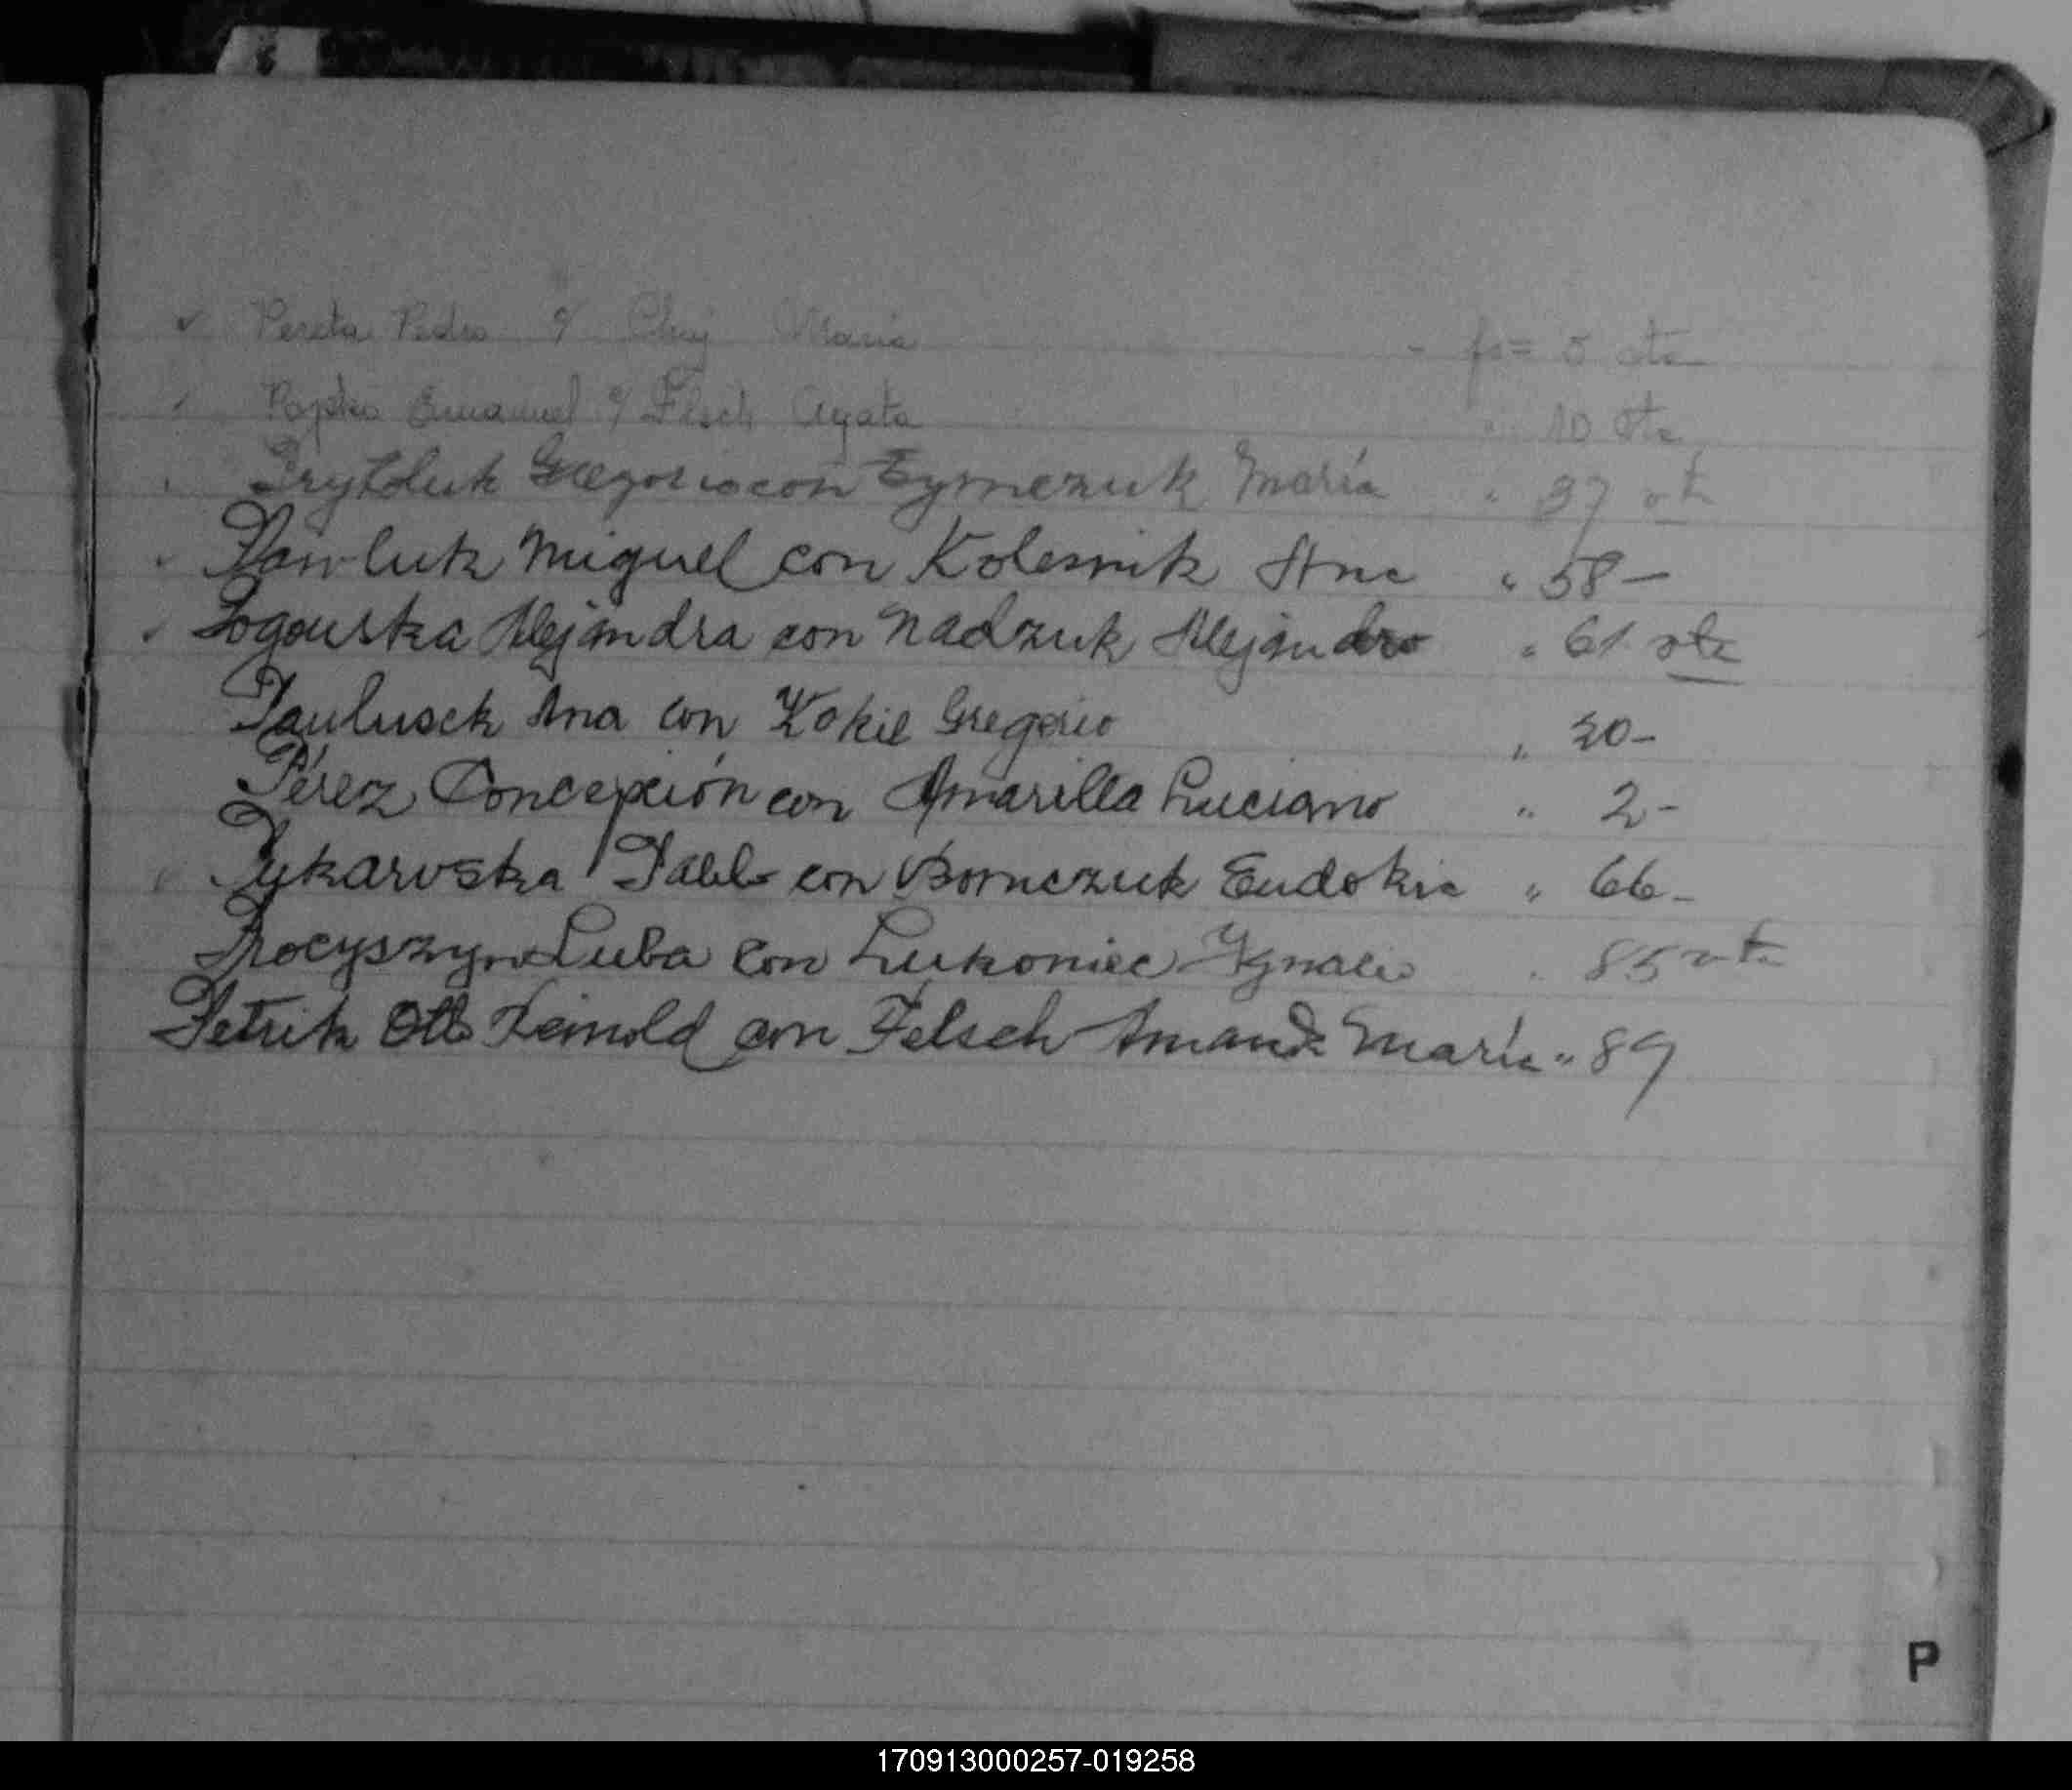 ✓ Pereta Pedro c/ Chuj Maria - fs= 5 vta
Popko Emanuel c/ Flesch Agata " 10 vta
Prytoluk Gregorio con Zymczuk María " 37 vta
Pawluk Miguel con Kolesnik Ana " 58 -
Pogourska Alejandra con Nadzuk Alejandro " 61 vta
Paulusek Ana con Kokil Gregorio " 20 -
Pérez Concepción con Amarilla Luciano " 2 -
Pykarvska Pablo con Bornczuk Eudokia " 66 -
Procyszyn Luba con Lukoniec Ygnacio " 85 vta
Petrik Otto Reinold con Felsch Amanda María " 89
P
170913000257-019258